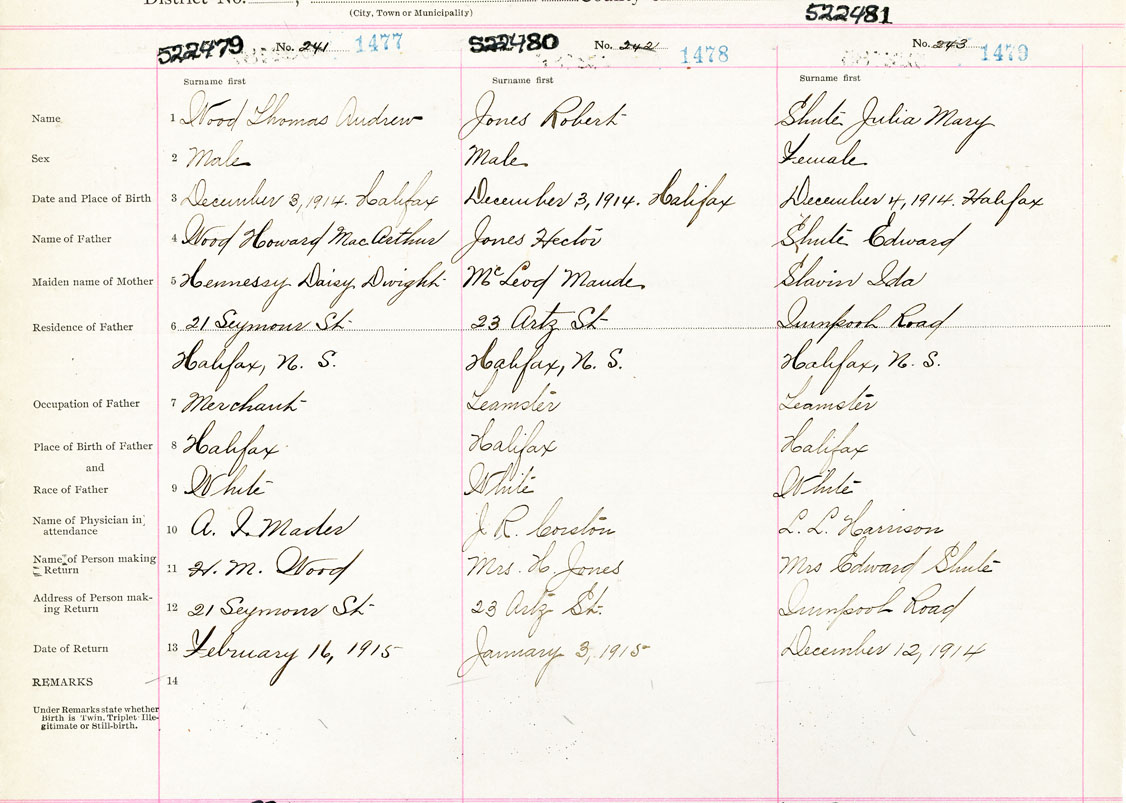 District No. , County
(City, Town or Municipality)
522481
522479 No. 241 1477 522480 No. 242 1478 No. 243 1479
Surname first Surname first Surname first
Name 1 Wood Thomas Andrew Jones Robert Shute Julia Mary
Sex 2 Male Male Female
Date and Place of Birth 3 December 3, 1914. Halifax December 3, 1914. Halifax December 4, 1914. Halifax
Name of Father 4 Wood Howard MacArthur Jones Hector Shute Edward
Maiden name of Mother 5 Hennessy Daisy Dwight McLeod Maude Slavin Ida
Residence of Father 6 21 Seymour St 23 Artz St Quinpool Road
Halifax, N. S. Halifax, N. S. Halifax, N. S.
Occupation of Father 7 Merchant Teamster Teamster
Place of Birth of Father 8 Halifax Halifax Halifax
and
Race of Father 9 White White White
Name of Physician in
attendance 10 A. I. Mader J R. Corston L. L. Harrison
Name of Person making
Return 11 H. M. Wood Mrs. H Jones Mrs Edward Shute
Address of Person mak-
ing Return 12 21 Seymour St 23 Artz St. Quinpool Road
Date of Return 13 February 16, 1915 January 3, 1915 December 12, 1914
REMARKS 14
Under Remarks state whether
Birth is Twin, Triplet Ille-
gitimate or Still-birth.